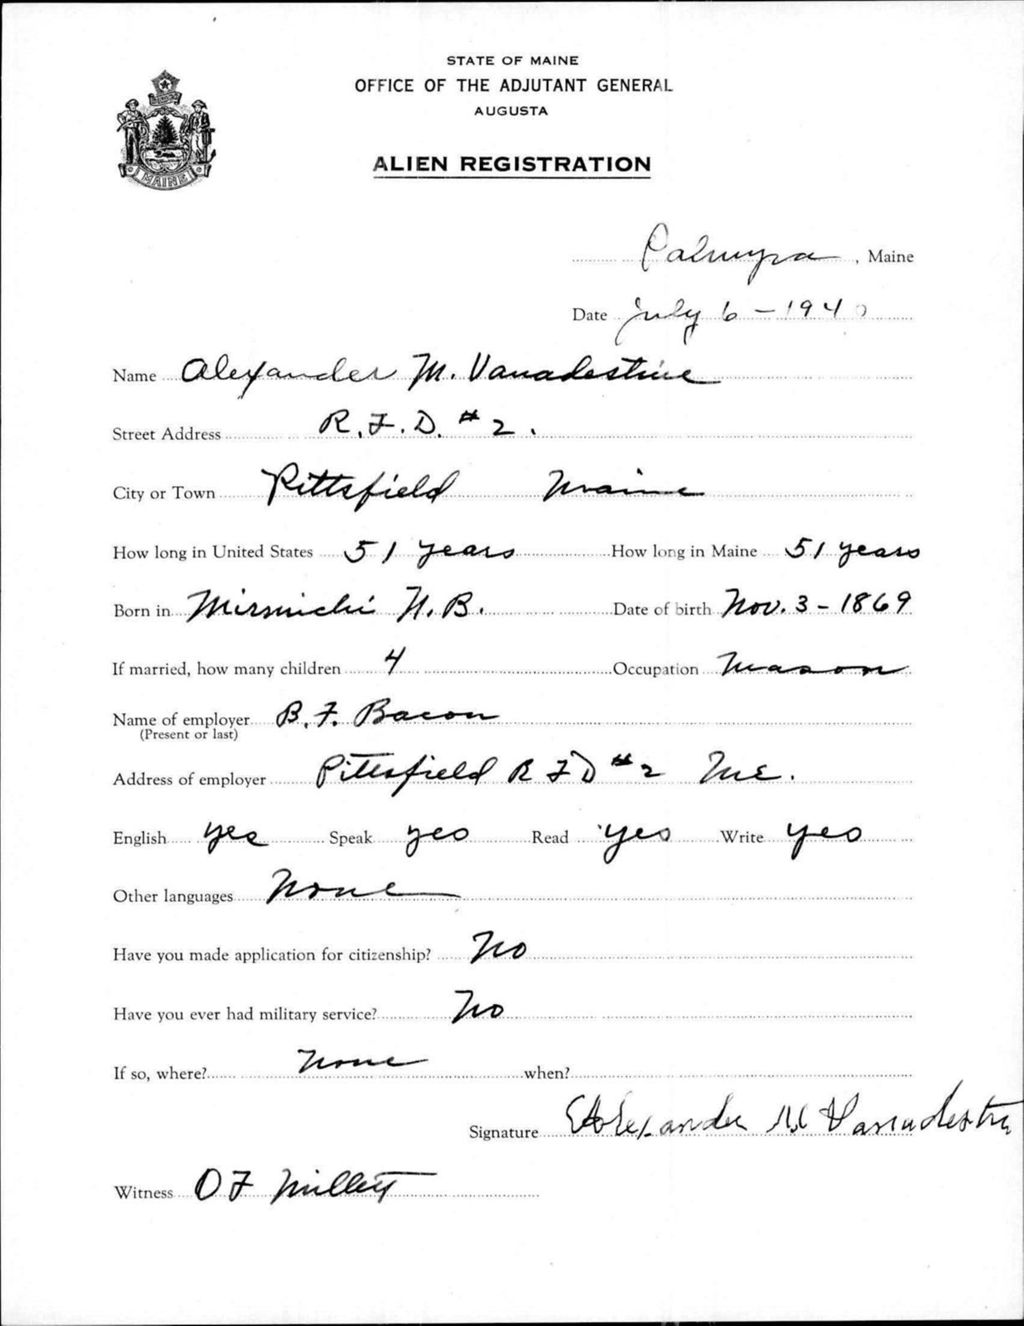 STATE OF MAINE
OFFICE OF THE ADJUTANT GENERAL
AUGUSTA
ALIEN REGISTRATION
MAINE
Palmyra, Maine
Date July 6 - 1940
Name Alexander M. Vanadestine
Street Address R.F.D. #2.
City or Town Pittsfield Maine
How long in United States 51 years How long in Maine 51 years
Born in Mirmichi N.B. Date of birth Nov. 3 - 1869
If married, how many children 4 Occupation Mason
Name of employer B. F. Bacon
(Present or last)
Address of employer Pittsfield R F D #2 ME.
English yes Speak yes Read yes Write yes
Other languages None
Have you made application for citizenship? No
Have you ever had military service? No
If so, where? None when?
Signature Alexander M Vanadestin
Witness O F Millett